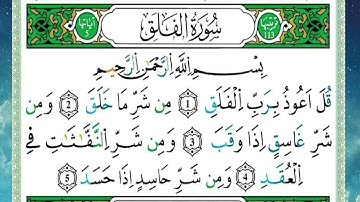 ترتيبها 113 سُورَةُ الْفَلَقِ آيَاتُهَا 5
بِسْمِ اللَّهِ الرَّحْمَٰنِ الرَّحِيمِ
قُلْ أَعُوذُ بِرَبِّ الْفَلَقِ 1 مِن شَرِّ مَا خَلَقَ 2 وَمِن
شَرِّ غَاسِقٍ إِذَا وَقَبَ 3 وَمِن شَرِّ النَّفَّاثَاتِ فِي
الْعُقَدِ 4 وَمِن شَرِّ حَاسِدٍ إِذَا حَسَدَ 5